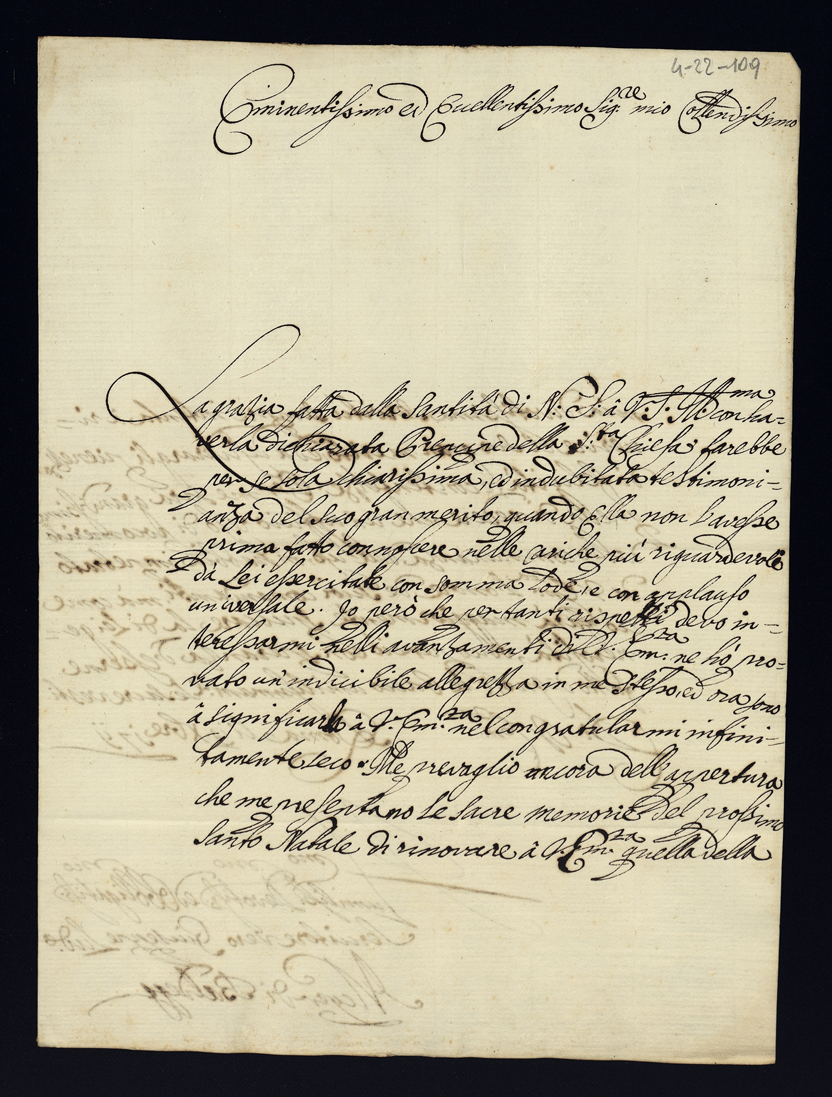 4-22-109
Eminentissimo ed Eccellentissimo Sig.re mio Collendissimo
La grazia fatta dalla Santità di N: S: à V: S: Ill:ma con ha=
verla dichiarata Prencipe della S:ta Chiesa sarebbe
per se sola chiarissima, ed indubitata testimoni=
anza del suo gran merito, quando Ella non l'avesse
prima fatto connoscere nelle cariche più riguardevoli
dà Lei essercitate con somma lode, e con applauso
universale. Io però che per tanti rispetti devo in=
teressarmi nelli avanzamenti di V: Em:za ne hò pro=
vato un'indicibile allegrezza in me stesso, ed ora sono
à significarla à V: Em:za nel congratularmi infini=
tamente seco. Me prevaglio ancora dell'appertura
che me presentano le sacre memorie del prossimo
Santo Natale di rinovare à V: Em:za quella della